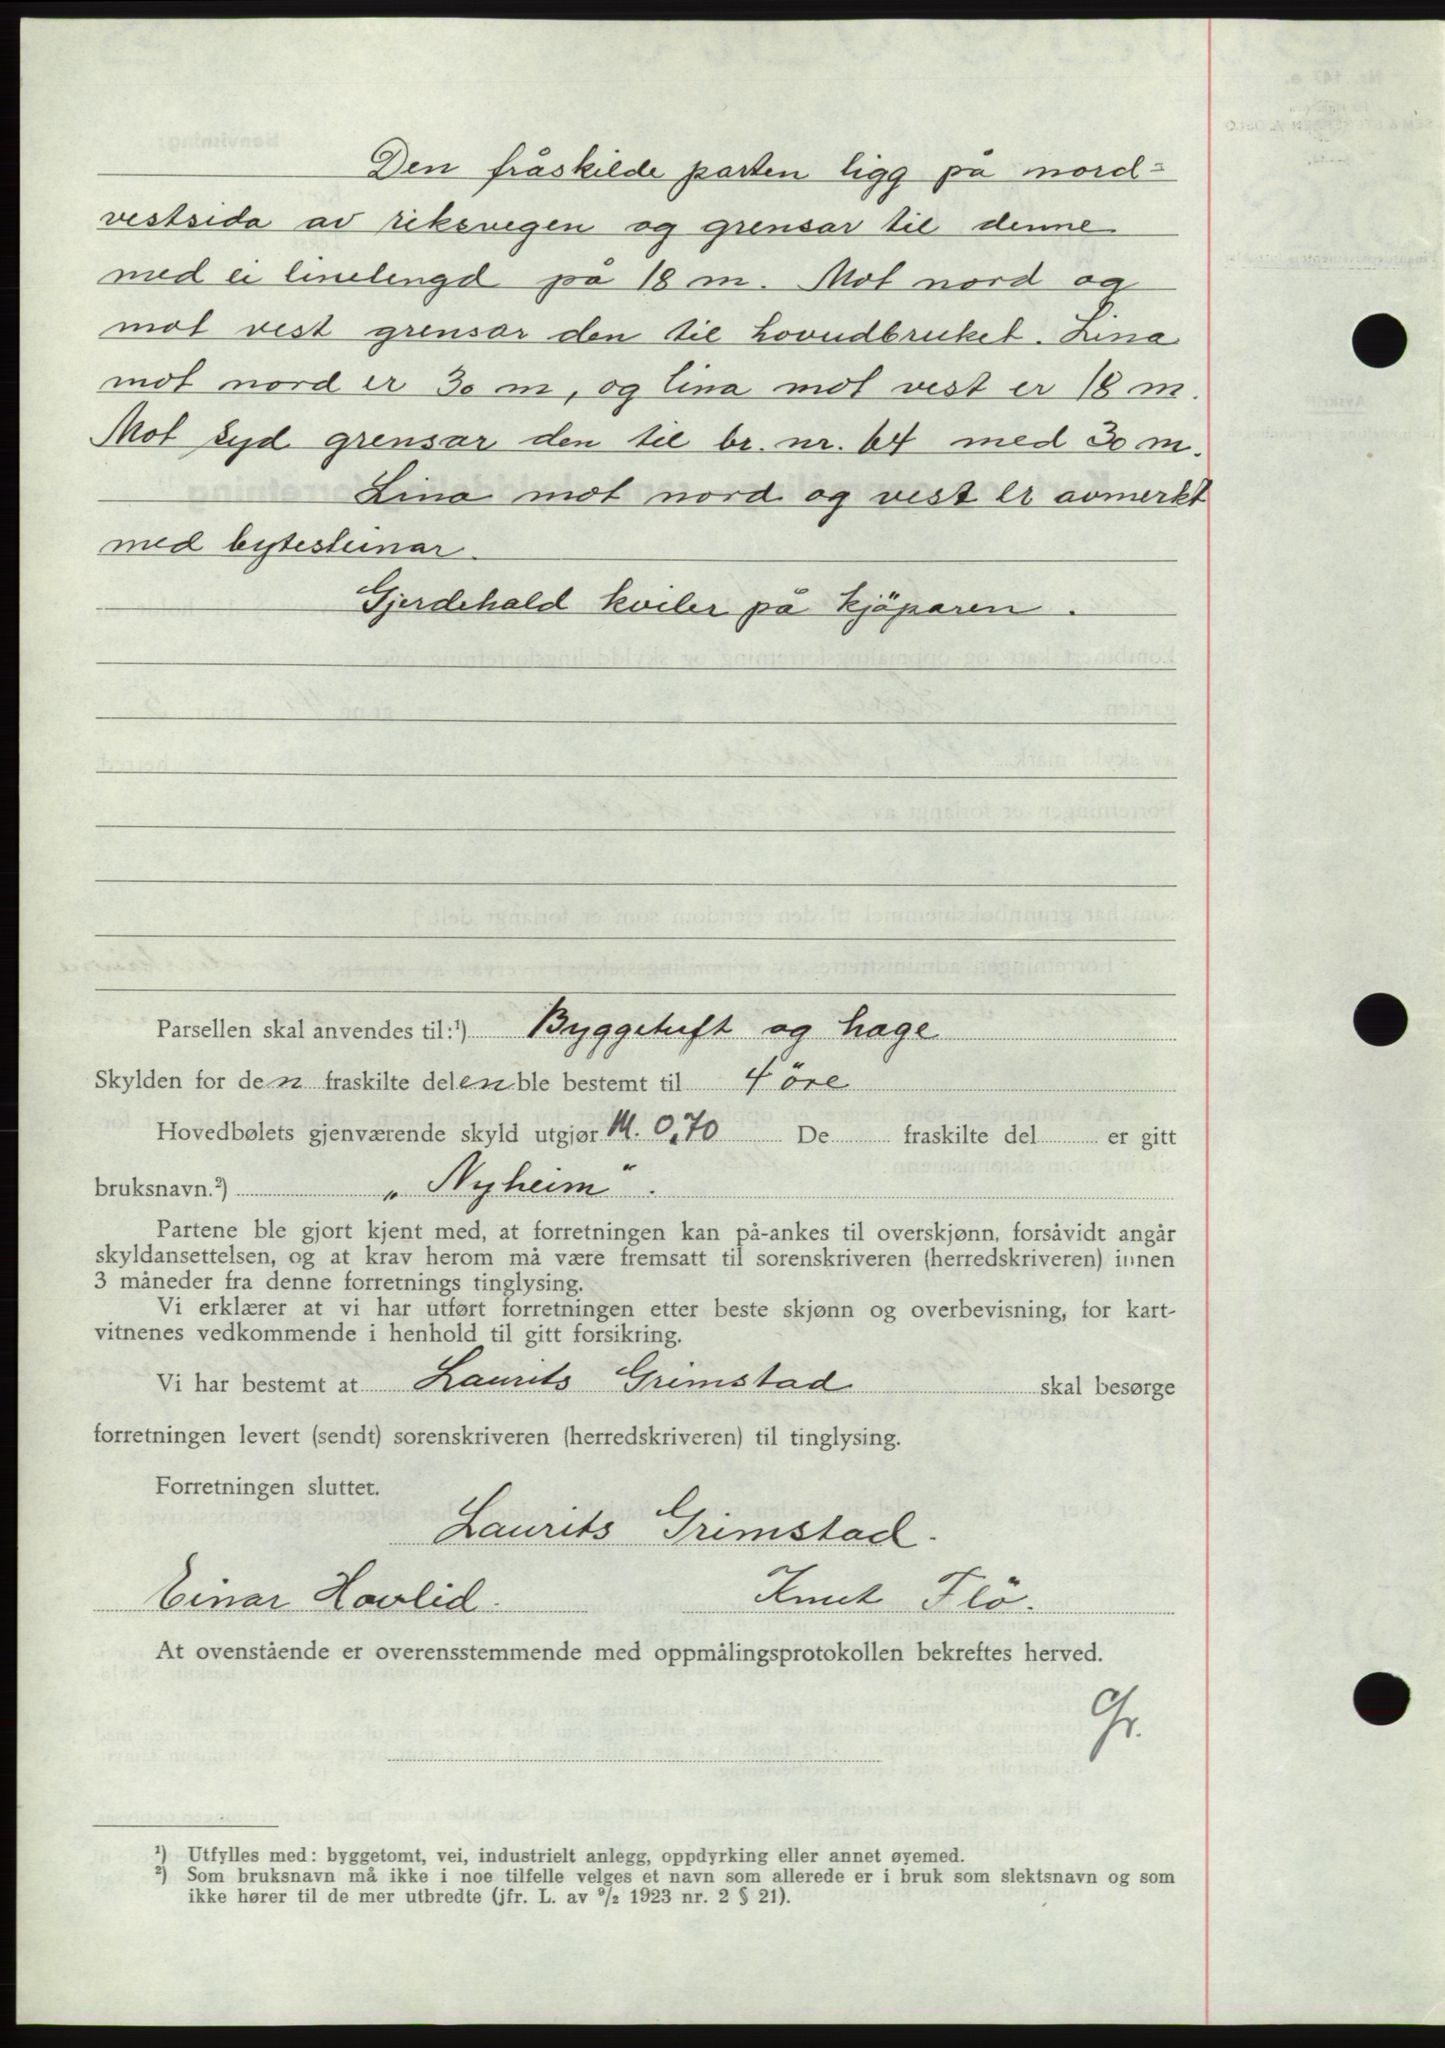 Den fråskilde parten ligg på nord-
vestsida av riksvegen og grensar til denne
med ei linelengd på 18 m. Mot nord og
mot vest grensar den til hovudbruket. Lina
mot nord er 30 m, og lina mot vest er 18 m.
Mot syd grensar den til br. nr. 64 med 30 m.
Lina mot nord og vest er avmerkt
med bytesteinar.
Gjerdehald kviler på kjöparen.
Parsellen skal anvendes til:¹) Byggetuft og hage
Skylden for den fraskilte delen ble bestemt til 4 öre
Hovedbølets gjenværende skyld utgjør M. 0,70 De fraskilte del er gitt
bruksnavn.²) „Nyheim".
Partene ble gjort kjent med, at forretningen kan på-ankes til overskjønn, forsåvidt angår
skyldansettelsen, og at krav herom må være fremsatt til sorenskriveren (herredskriveren) innen
3 måneder fra denne forretnings tinglysing.
Vi erklærer at vi har utført forretningen etter beste skjønn og overbevisning, for kart-
vitnenes vedkommende i henhold til gitt forsikring.
Vi har bestemt at Laurits Grimstad skal besørge
forretningen levert (sendt) sorenskriveren (herredskriveren) til tinglysing.
Forretningen sluttet.
Laurits Grimstad.
Einar Hovlid. Knut Flö.
At ovenstående er overensstemmende med oppmålingsprotokollen bekreftes herved.
Gr.
¹) Utfylles med: byggetomt, vei, industrielt anlegg, oppdyrking eller annet øyemed.
²) Som bruksnavn må ikke i noe tilfelle velges et navn som allerede er i bruk som slektsnavn og som
ikke hører til de mer utbredte (jfr. L. av ⁹/₂ 1923 nr. 2 § 21).